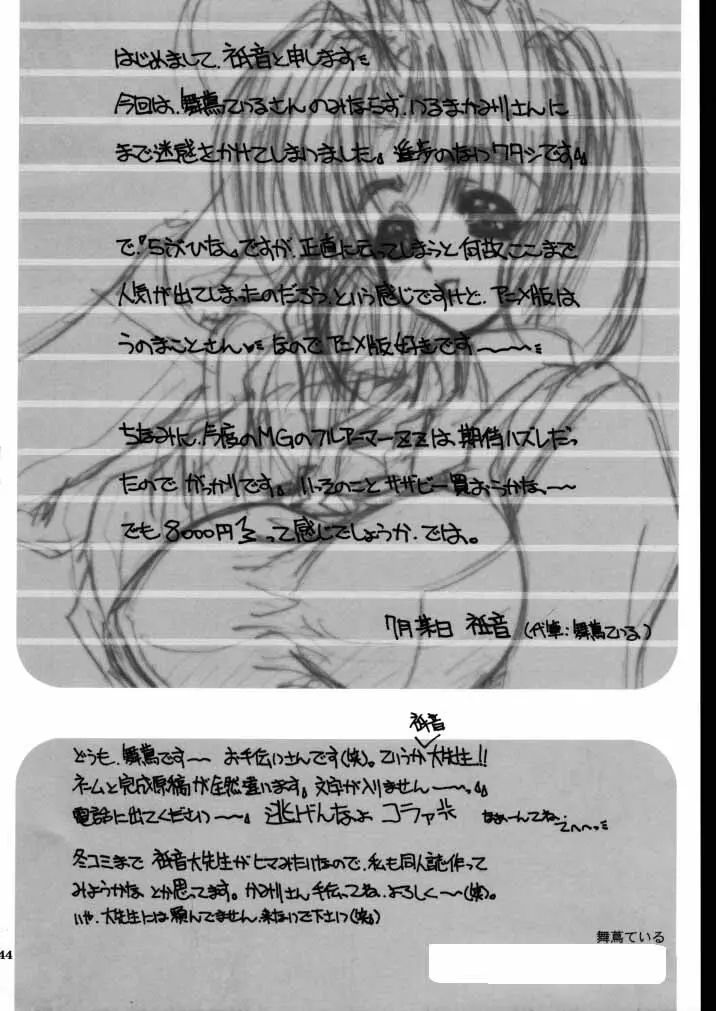 はじめまして、祇音と申します
今回は、舞蔦ているさんのみならず、かるまかみりさんに
まで迷惑をかけてしまいました。進歩のないワタシです。
で『らぶひな』ですが、正直に云ってしまうと何故、ここまで
人気が出てしまったのだろう、という感じですけど、アニメ版は
うのまことさん なのでアニメ版好きです〜〜〜
ちなみに、今度のMGのフルアーマーZZは、期待ハズレだっ
たので がっかりです。いっそのことサザビー買おうかな、〜〜
でも8000円 って感じでしょうか、では。
7月某日 祇音(代筆:舞蔦ている)
祇音
どうも、舞蔦です〜〜 お手伝いさんです(笑)。ていうか大先生!!
ネームと完成原稿が全然違います。文字が入りません〜〜。
電話に出てください〜〜。逃げんなよ コラァ なぁーんてね、てへへっ
冬コミまで 祇音大先生がヒマみたいなので、私も同人誌作って
みようかな、とか思ってます。かみりさん手伝ってね、よろしく〜〜(笑)。
いや、大先生には頼んでません、来ないで下さい(笑)
舞蔦ている
44